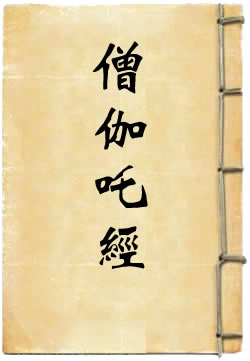 僧伽吒經